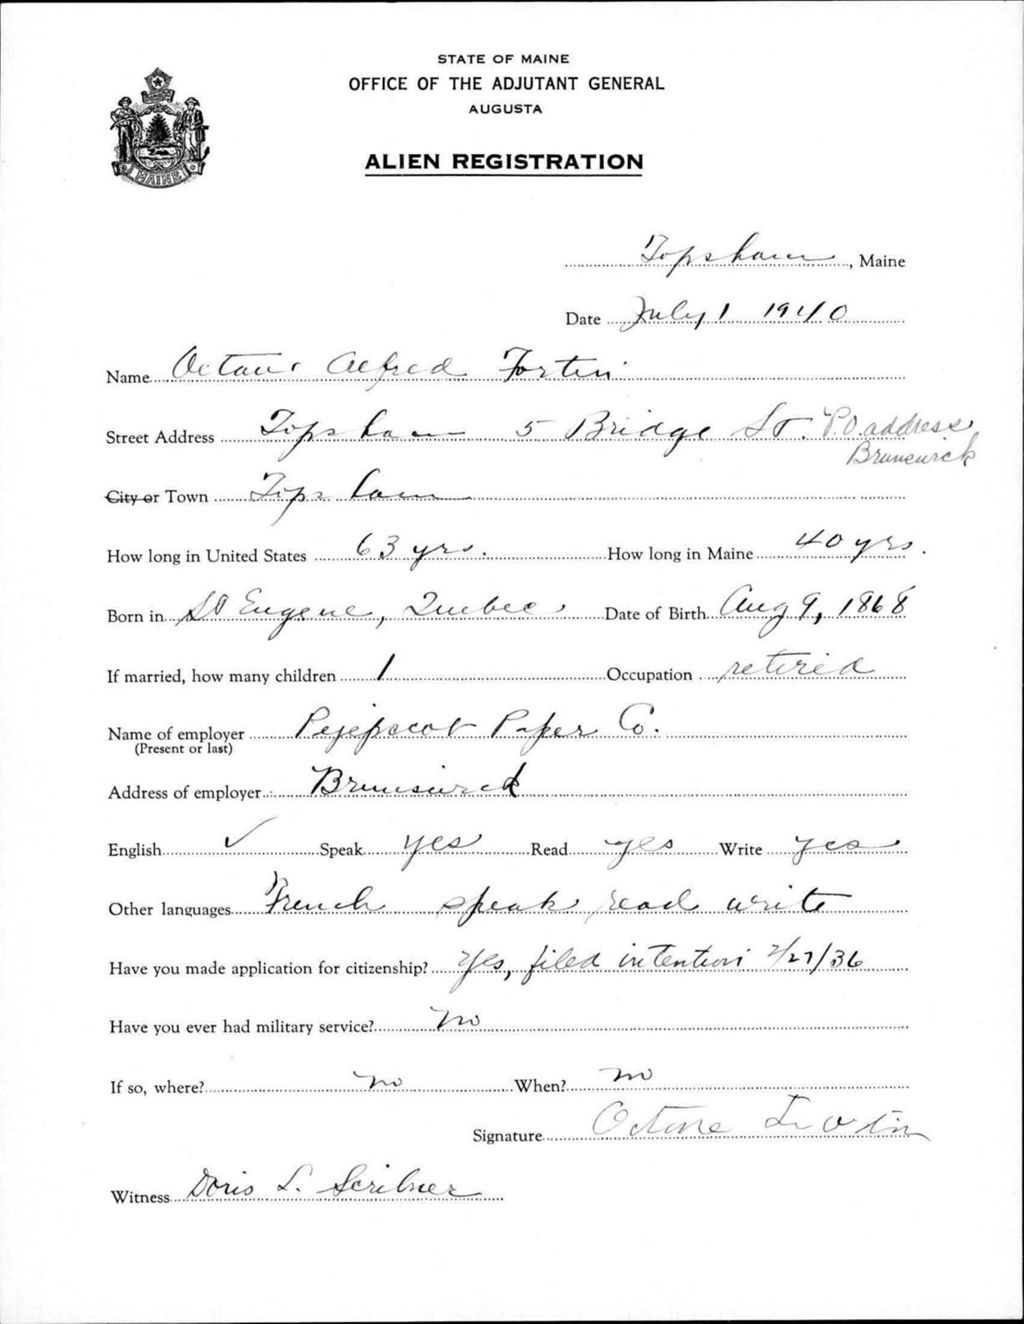 STATE OF MAINE
OFFICE OF THE ADJUTANT GENERAL
AUGUSTA
MAINE
ALIEN REGISTRATION
Topsham, Maine
Date July 1 1940
Name Alfred Fortin
Street Address Topsham 5 Bridge St. P.O. address
Brunswick
City or Town Topsham
How long in United States 63 yrs. How long in Maine 40 yrs.
Born in St Eugene, Quebec Date of Birth Aug 9, 1868
If married, how many children 1 Occupation retired
Name of employer Pejepscot Paper Co.
(Present or last)
Address of employer Brunswick
English ✓ Speak yes Read yes Write yes
Other languages French speak read write
Have you made application for citizenship? Yes, filed intention 2/27/36
Have you ever had military service? No
If so, where? no When? no
Signature
Witness Doris L. Scribner